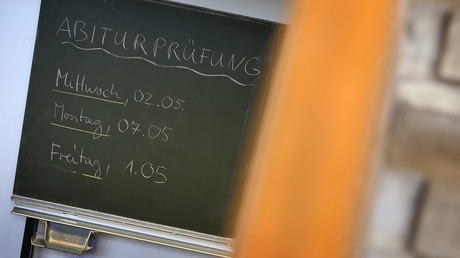 ABITURPRÜFUNG
Mittwoch, 02.05.
Montag, 07.05.
Freitag, 1.05